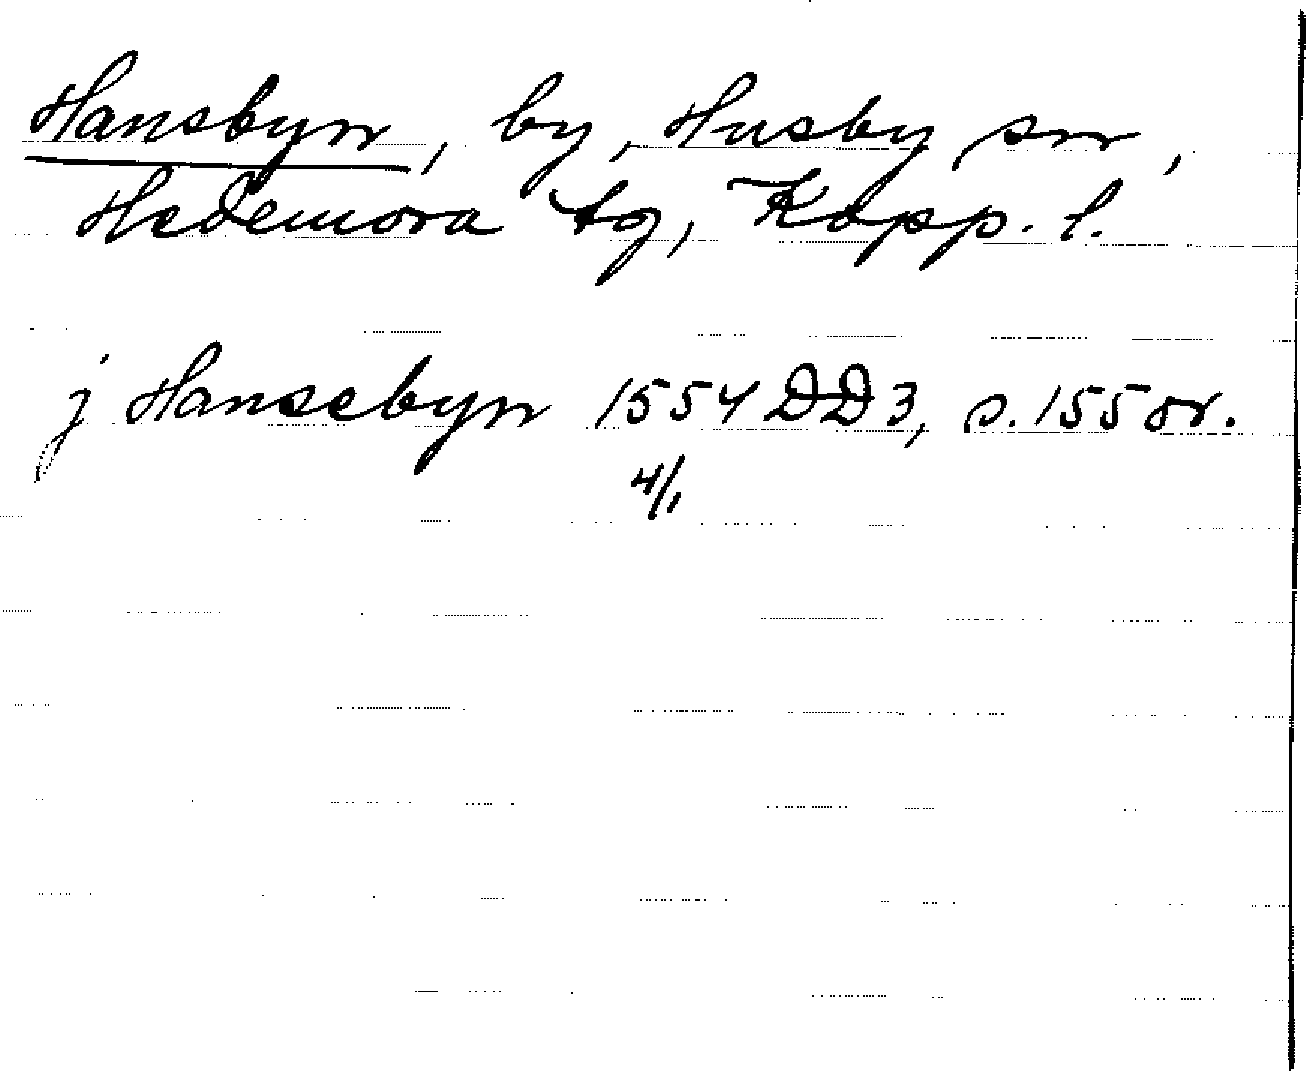 Hansbyn, by, Husby sn,
Hedemora tg, Kopp. l.
j Hansebyn 1554 DD3, s. 155 or.
4/1